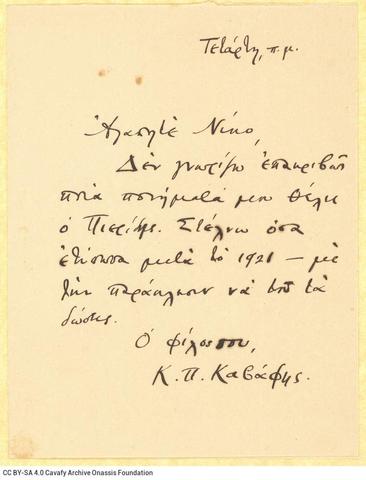 Τετάρτη, π.μ.
Ἀγαπητὲ Νίκο,
Δὲν γνωρίζω ἐπακριβῶς
ποιὰ ποιήματά μου θέλει
ὁ Πιερίδης. Στέλνω ὅσα
ἐτύπωσα μετὰ τὸ 1921 — μὲ
τὴν παράκλησιν νὰ τοῦ τὰ
δώσῃς.
Ὁ φίλος σου,
Κ. Π. Καβάφης.
CC BY-SA 4.0 Cavafy Archive Onassis Foundation